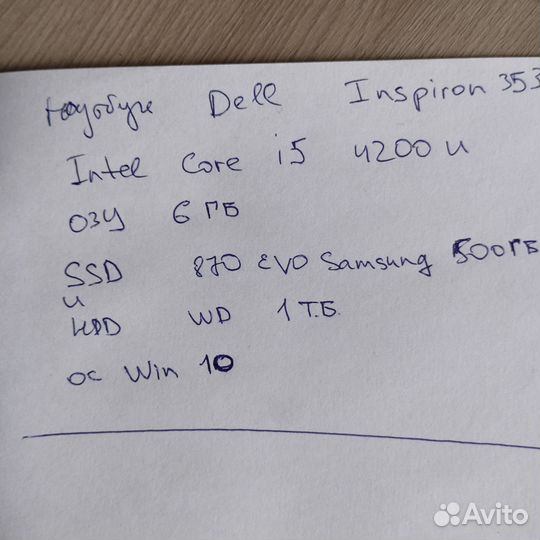 Ноутбук Dell Inspiron 353
Intel Core i5 4200u
ОЗУ 6 ГБ
SSD 870 EVO Samsung 500ГБ
и
HDD WD 1 Т.Б.
ос Win 10
Avito